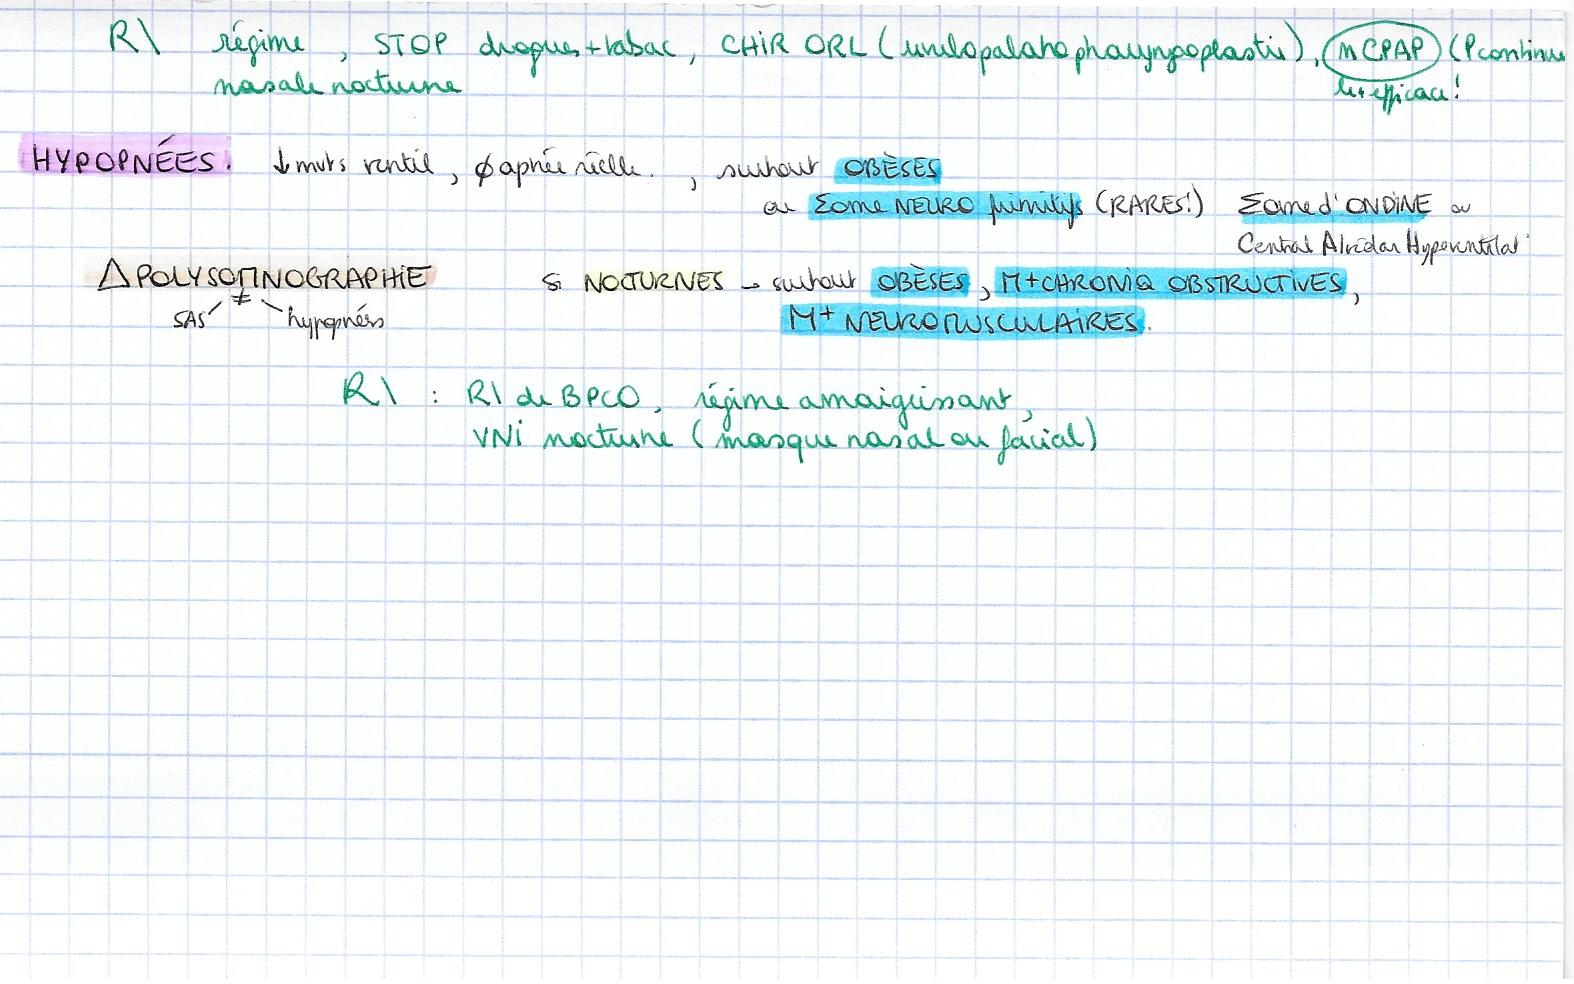 R\ régime, STOP drogues + tabac, CHIR ORL (uvulopalatopharyngoplastie), nCPAP (P continue
nasale nocturne
très efficace!
HYPOPNÉES. ↓ mvts ventil, ∅ apnée réelle. , surtout OBÈSES
ou Σome NEURO primitifs (RARES!) Σome d'ONDINE ou
Central Alvéolar Hypoventilat°
Δ POLYSOMNOGRAPHIE si NOCTURNES → surtout OBÈSES, M+ CHRONIQ OBSTRUCTIVES,
SAS ≠ hypopnées M+ NEUROMUSCULAIRES.
R\ : R\ de BPCO, régime amaigrissant,
VNi nocturne (masque nasal ou facial)